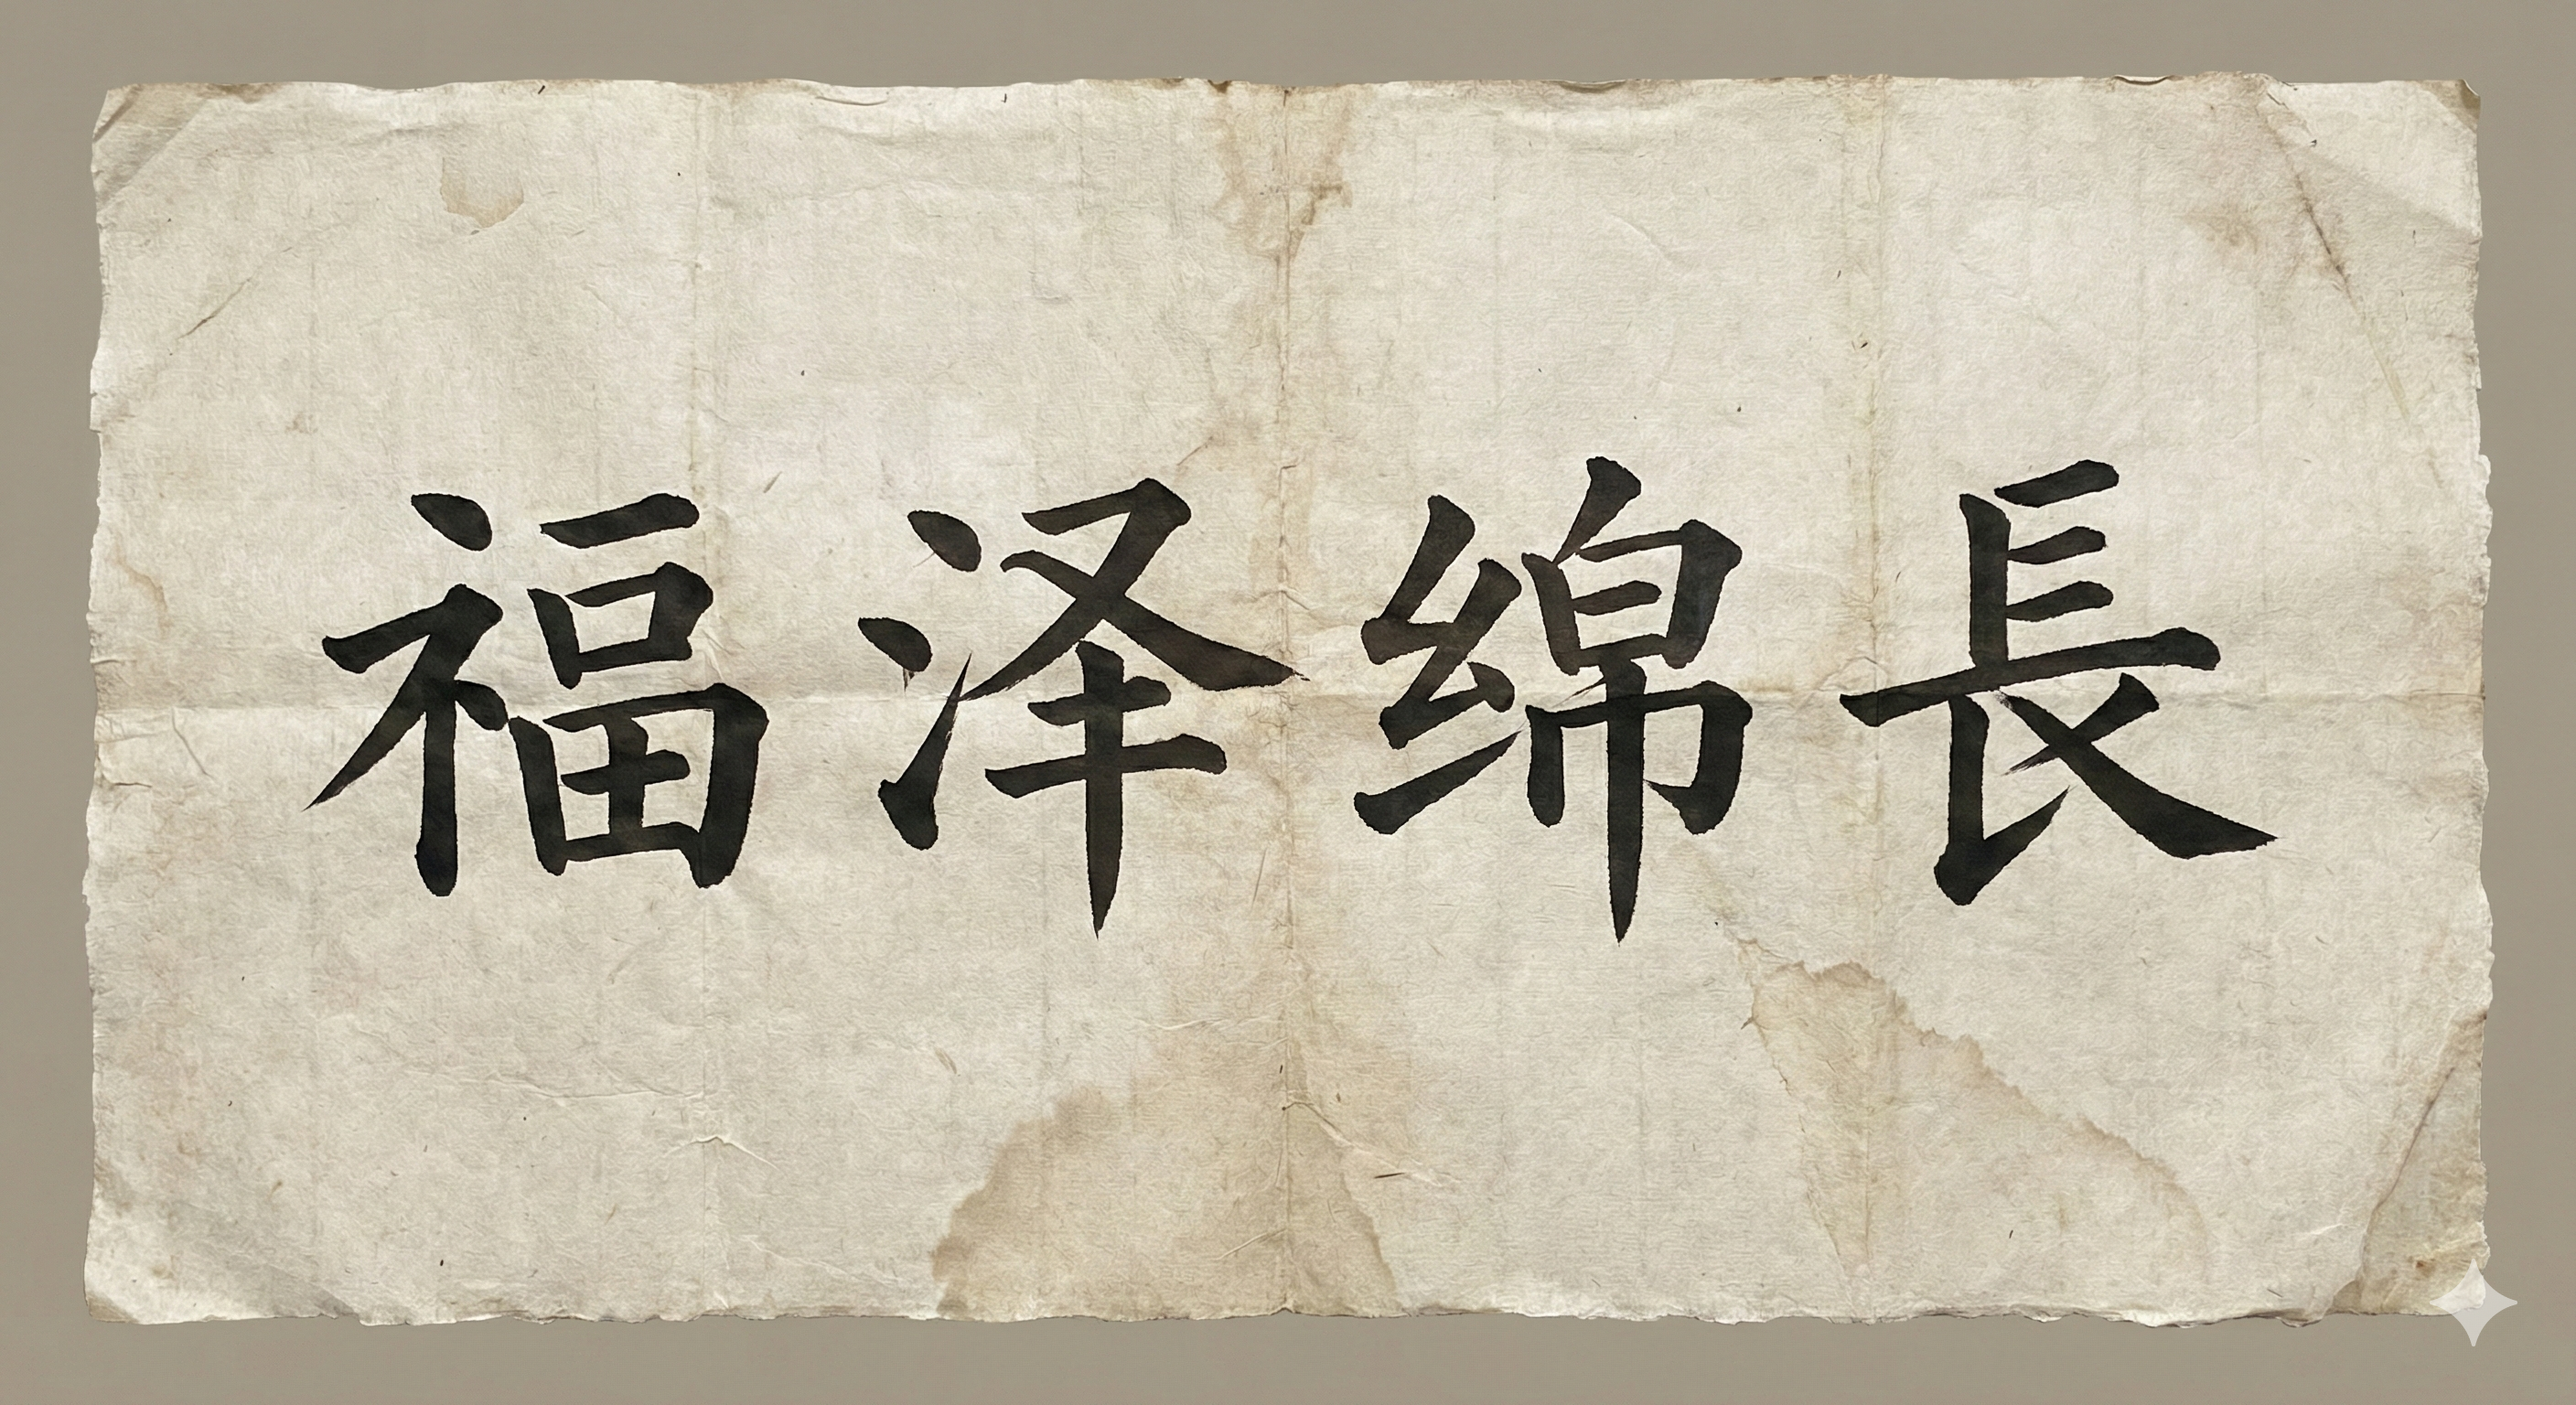 福泽绵長